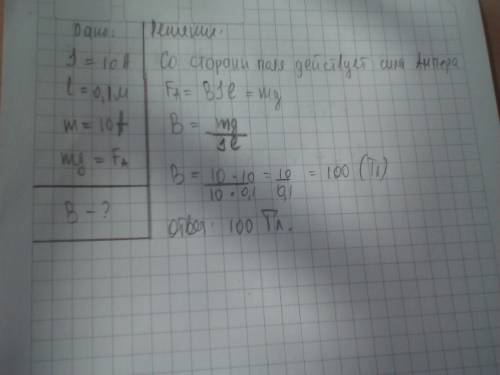 Дано:
J = 10 A
l = 0,1 м
m = 10
mg = Fₐ
B - ?
Решение:
Со стороны поля действует сила Ампера
Fₐ = BJl = mg
B = mg / Jl
B = 10 · 10 / 10 · 0,1 = 10 / 0,1 = 100 (Тл)
Ответ: 100 Тл.